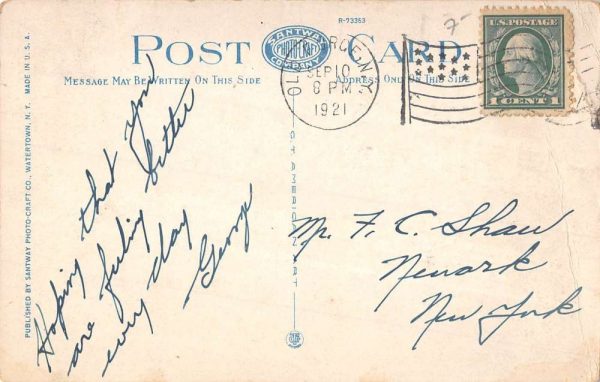 R-73353
POST CARD
SANTWAY
PHOTO-CRAFT
COMPANY
MESSAGE MAY BE WRITTEN ON THIS SIDE
ADDRESS ONLY ON THIS SIDE
SEP 10
8 PM
1921
N.Y.
U.S. POSTAGE
1 CENT 1
7-
Hoping that you
are feeling better
every day
George
Mr. F. C. Shaw
Newark
New York
PUBLISHED BY SANTWAY PHOTO-CRAFT CO., WATERTOWN, N. Y. MADE IN U. S. A.
AMERICAN ART